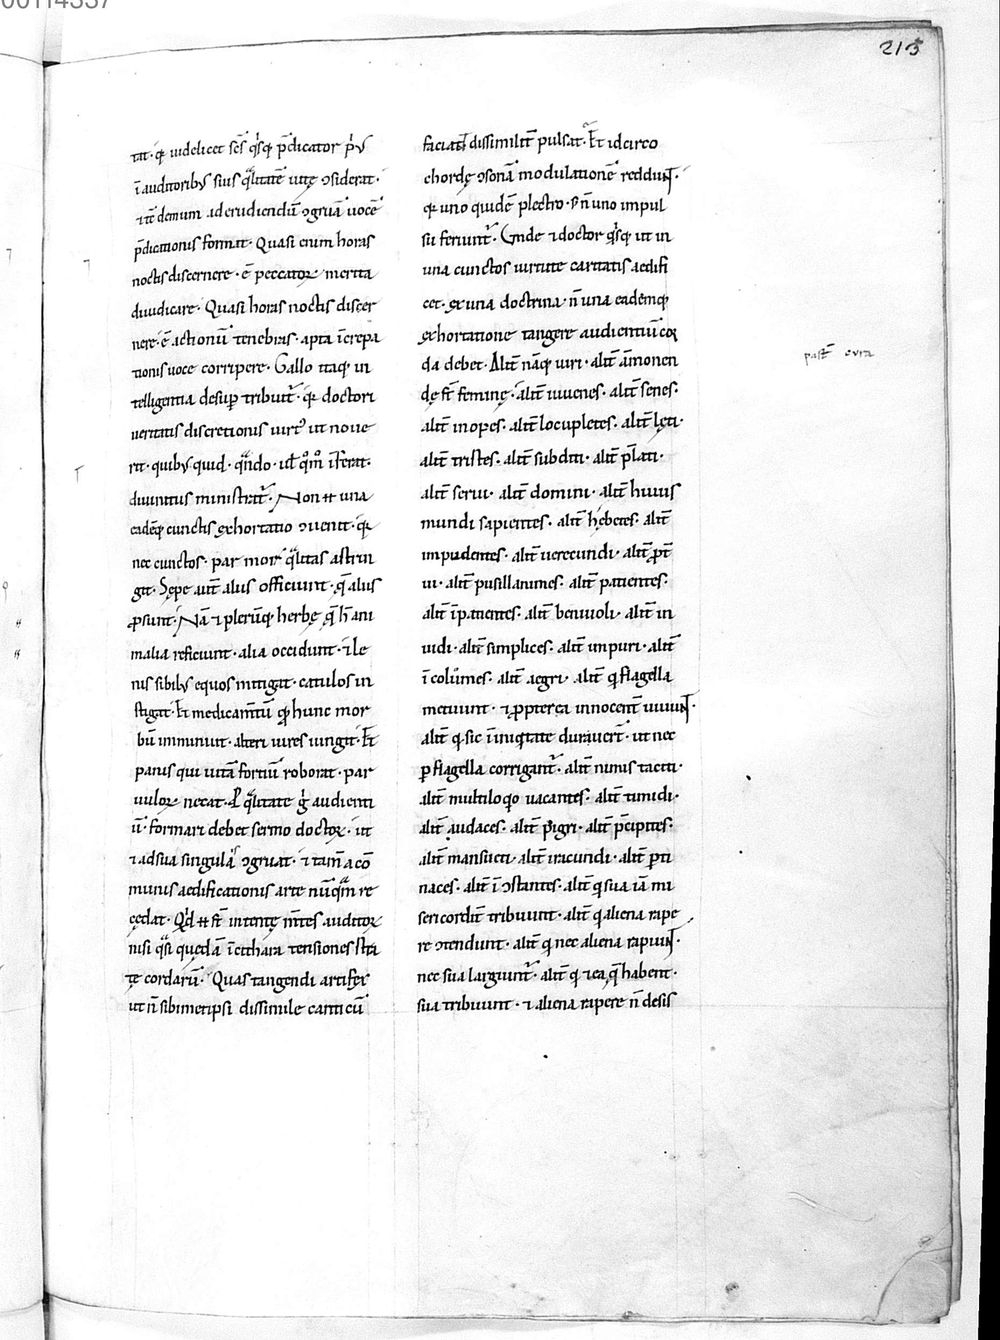 213
tat· q̄ uidelicet sc̄s q'sq; p̄dicator p'us
ī auditoribꝰ suis q̃litatē uitę ɔsiderat·
⁊ tc̄ demum ad erudiendū ɔgruā uocē
p̄dicationis format· Quasi enim horas
noctis discernere· ē peccatoꝝ merita
diiudicare· Quasi horas noctis discer
nere· ē actionū tenebras· apta īcrepa
tionis uoce corripere· Gallo itaq; in
telligentia desuꝑ tribuit᷑· q̄ doctori
ueritatis discretionis uirtꝰ ut noue
rit· quibꝰ quid· q̃ndo· ul' q°m̄ īferat·
diuinitus ministrat᷑· Non ⁊̄ una
eadēq; cunctis exhortatio ɔuenit· q̄
nec cunctos· par moꝝ q̃litas astrin
git· Sępe aut̄ aliis officiunt· q̄ aliis
ꝓsunt· Nā ⁊ plerūq; herbę q̄ h̄ ani
malia reficiunt· alia occidunt· ⁊ le
nis sibilꝰ equos mitigat· catulos in
stigat· Et medicam̄tū q̄ hunc mor
bū imminuit· alteri uires iungit· Et
panis qui uitā fortiū roborat· par
uuloꝝ necat· P q̃litate g° audienti
ū· formari debet sermo doctoꝝ· ut
⁊ ad sua singulis ɔgruat· ⁊ tam̄ a cō
munis aedificationis arte nūq̃m re
cędat· Q'd ⁊̄ s̄t intentę m̄tes auditoꝝ
nisi q̃si quędā ī cithara tensiones stra
tę cordarū· Quas tangendi artifex
ut n̄ sibimetipsi dissimile canticū
faciat· dissimilit̄ pulsat᷑· Et idcirco
chordę ɔsonā modulationē reddunt·
q̄ uno quidē plectro· s; n̄ uno impul
su feriunt᷑· Unde ⁊ doctor q'sq; ut in
una cunctos uirtute caritatis aedifi
cet· ex una doctrina· n̄ una eademq;
exhortatione tangere audientiū cor
da debet· Alit̄ nāq; uiri· alit̄ āmonen
dę s̄t feminę· alit̄ iuuenes· alit̄ senes·
alit̄ inopes· alit̄ locupletes· alit̄ lęti·
alit̄ tristes· alit̄ subditi· alit̄ p̄lati·
alit̄ serui· alit̄ domini· alit̄ huius
mundi sapientes· alit̄ hebetes· alit̄
impudentes· alit̄ uerecundi· alit̄ ꝓt̄
ui· alit̄ pusillanimes· alit̄ patientes·
alit̄ īpatientes· alit̄ beniuoli· alit̄ in
uidi· alit̄ simplices· alit̄ impuri· alit̄
īcolumes· alit̄ aegri· alit̄ q' flagella
metuunt· ⁊ ꝓpterea innocent̄ uiuunt·
alit̄ q' sic īiniq'tate duraueř· ut nec
ꝑ flagella corrigant᷑· alit̄ nimis taciti·
alit̄ multiloq°o uacantes· alit̄ timidi·
alit̄ audaces· alit̄ pigri· alit̄ p̄cipites·
alit̄ mansueti· alit̄ iracundi· alit̄ ꝑti
naces· alit̄ īɔstantes· alit̄ q' sua iā mi
sericordit̄ tribuunt· alit̄ q' aliena rape
re ɔtendunt· alit̄ q' nec aliena rapiunt·
nec sua largiunt᷑· alit̄ q' ⁊ ea q̄ habent·
sua tribuunt· ⁊ aliena rapere n̄ desis
past̄ cura